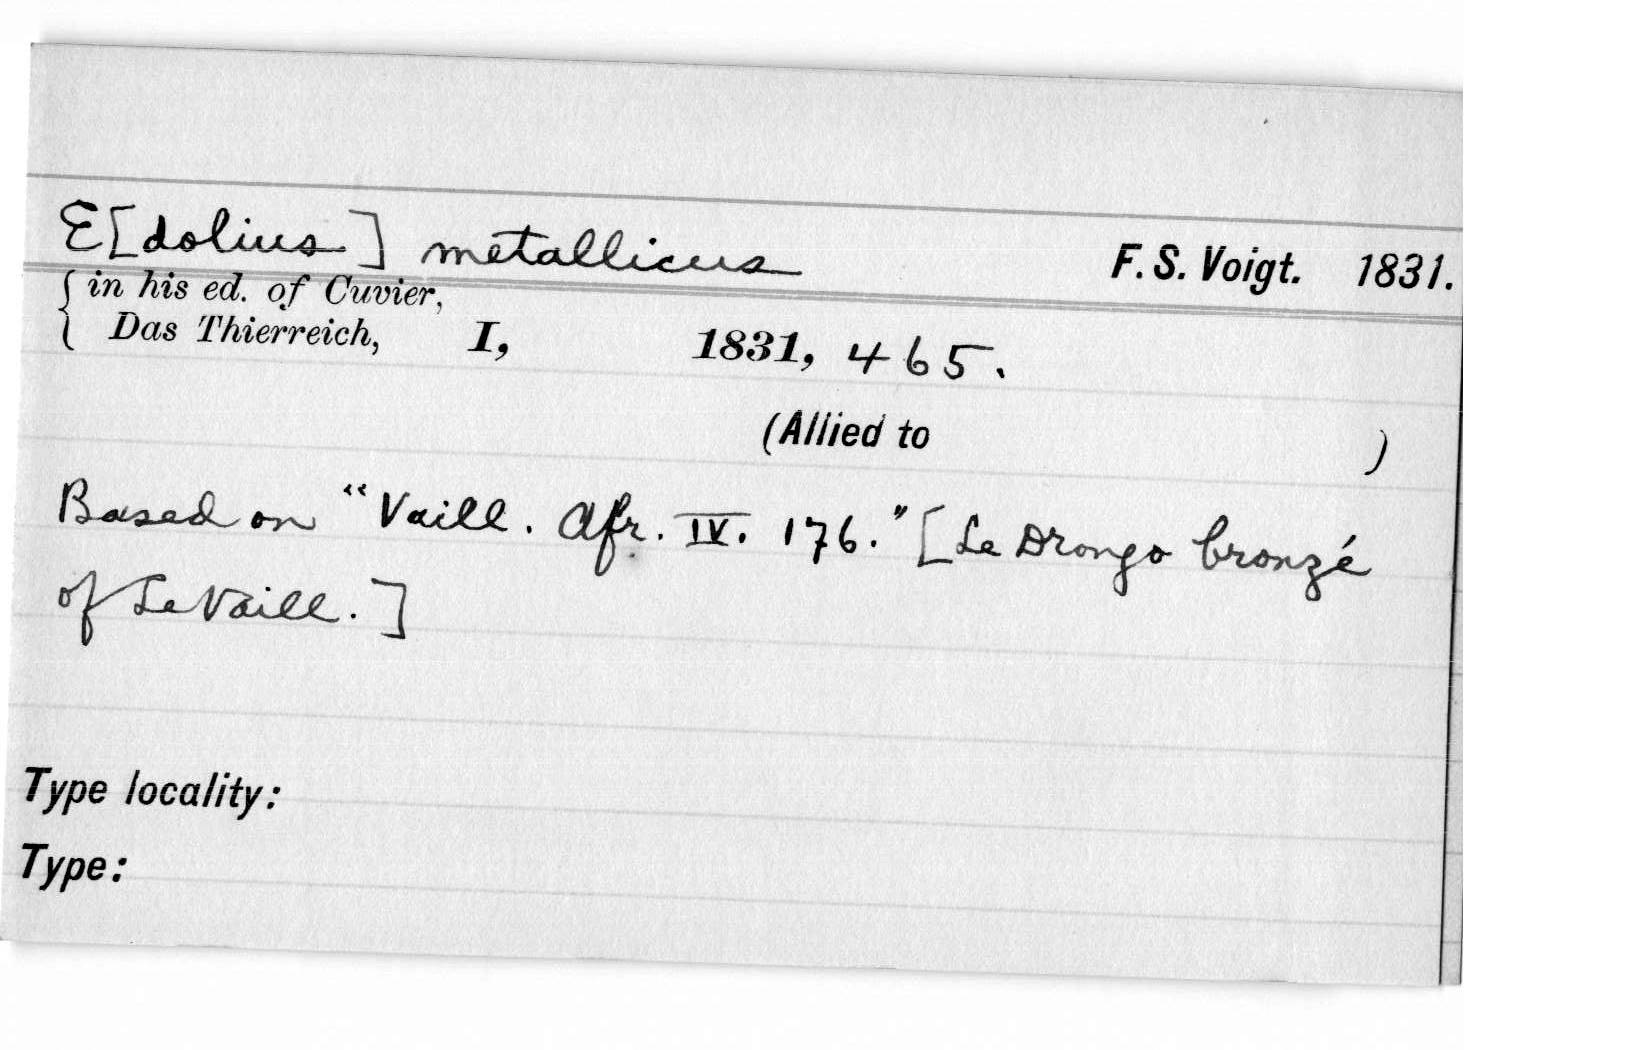 E[dolius] metallicus F. S. Voigt. 1831.
{ in his ed. of Cuvier,
Das Thierreich, I, 1831, 465.
(Allied to )
Based on "Vaill. Afr. IV. 176." [Le Drongo bronzé
of LeVaill.]
Type locality:
Type: